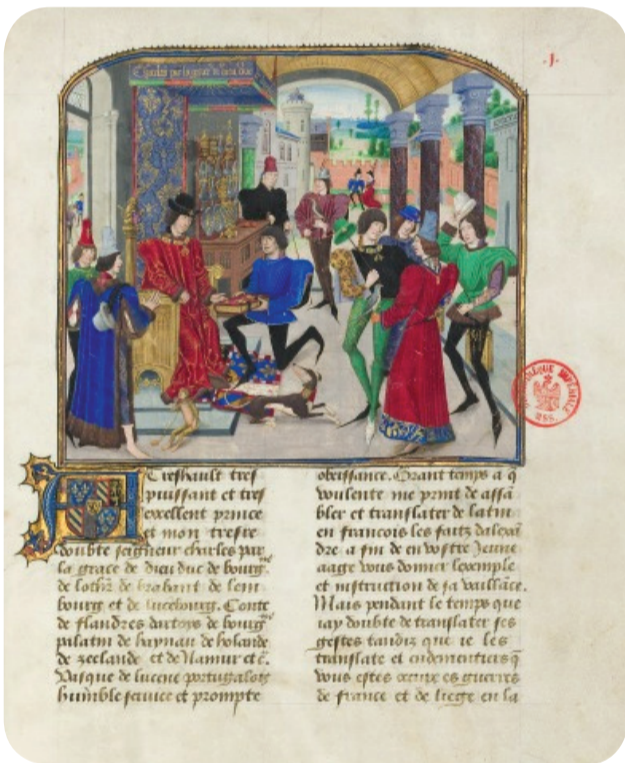 .J.
Charles par la grace de dieu duc
BIBLIOTHÈQUE IMPÉRIALE
MSS.
A Treshault tres
puissant et tres
excellent prince
et mon tresre
doubte seigneur charles par
la grace de dieu duc de bourg.
de lothr. de brabant de lem
bourg et de lucebourg. Conte
de flandres dartoys de bourg.
palatin de haynau de holande
de zeelande et de Namur etc.
Vasque de lucene portugalois
humble service et prompte
obeissance. Grant temps a q
voulente me print de assã
bler et translater de latin
en francois les faitz dalexã
dre a fin de en vostre Jeune
aage vous donner lexemple
et instruction de sa vaillãce.
Mais pendant le temps que
jay doubte de translater ses
gestes tandiz que ie les
translate et endementiers q̃
vous estes es guerres
de france et de liege en la